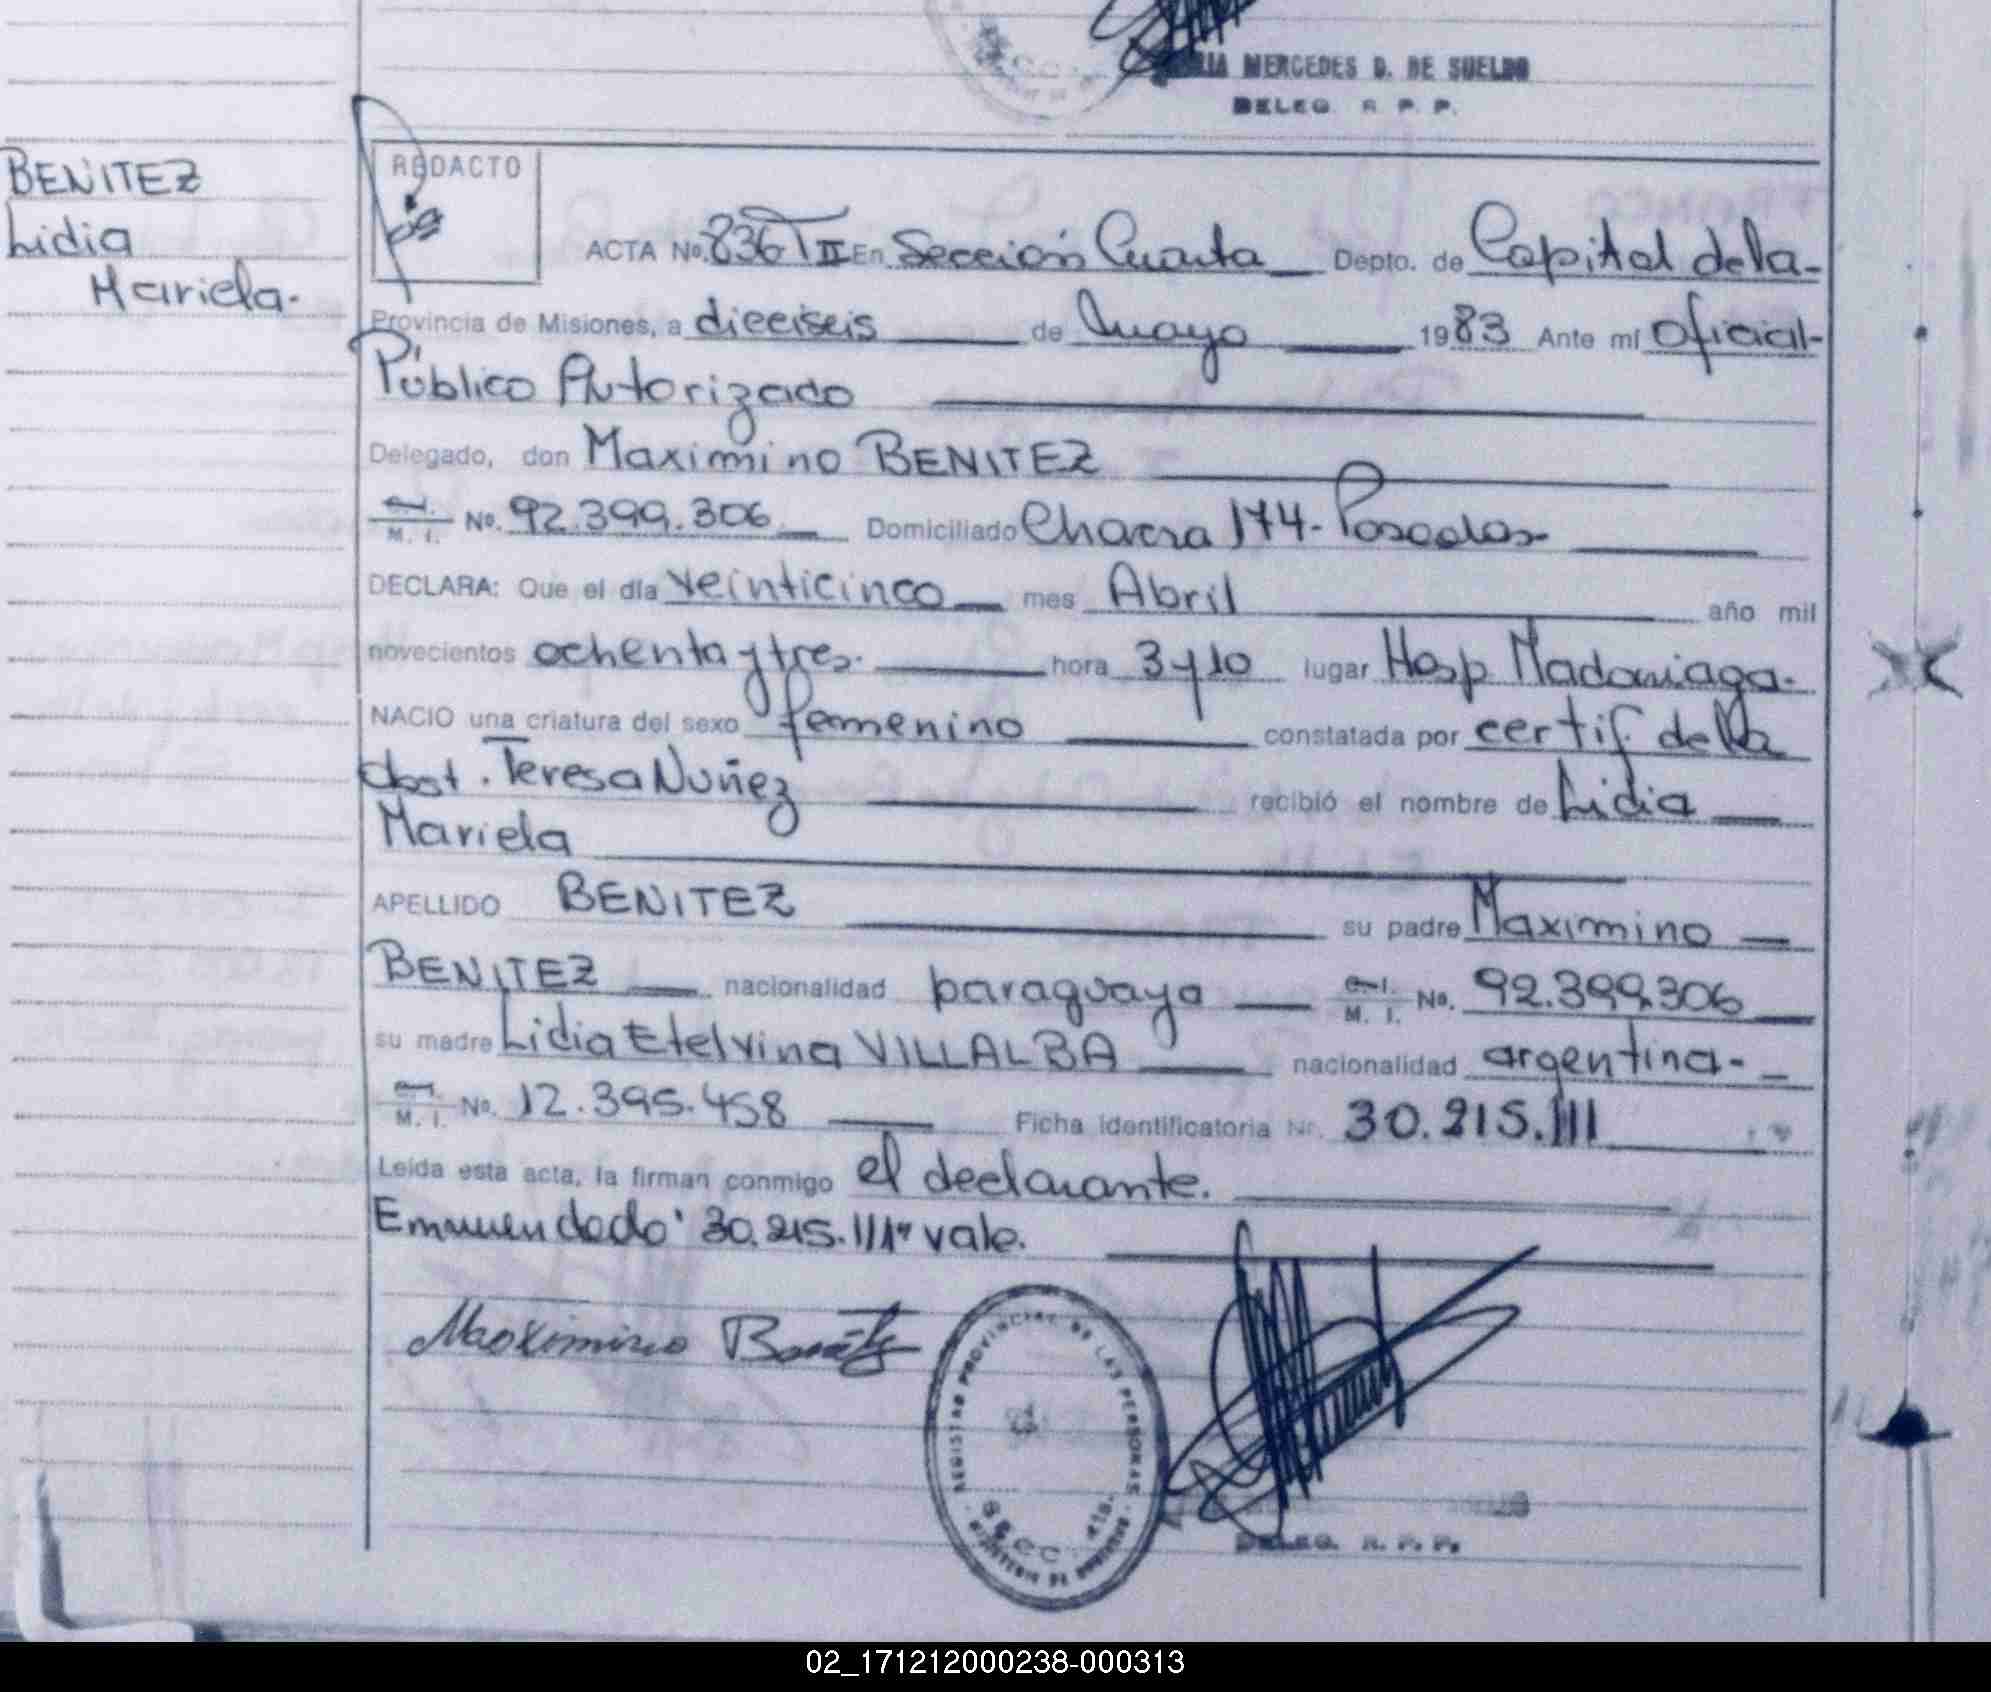 MERCEDES D. DE SUELDO
DELEG. R. P. P.
BENITEZ
Lidia
Mariela.
REDACTO
ACTA No. 836 T II En Sección Cuarta Depto. de Capital de la
Provincia de Misiones, a dieciseis de Mayo 1983 Ante mí oficial
Público Autorizado
Delegado, don Maximino BENITEZ
C. I.
M. I. No. 92.399.306 Domiciliado Chacra 174 - Posadas
DECLARA: Que el día veinticinco mes Abril año mil
novecientos ochenta y tres. hora 3 y 10 lugar Hosp Madariaga.
NACIO una criatura del sexo femenino constatada por certif. de la
obst. Teresa Nuñez recibió el nombre de Lidia
Mariela
APELLIDO BENITEZ su padre Maximino
BENITEZ nacionalidad paraguaya C. I.
M. I. No. 92.399.306
su madre Lidia Etelvina VILLALBA nacionalidad argentina
C. I.
M. I. No. 12.395.458 Ficha identificatoria Nr. 30.215.111
Leída esta acta, la firman conmigo el declarante.
Enmendado "30.215.111" vale.
Maximino Benítez
REGISTRO PROVINCIAL DE LAS PERSONAS
SECC. 4ta.
DELEG. R. P. P.
02_171212000238-000313